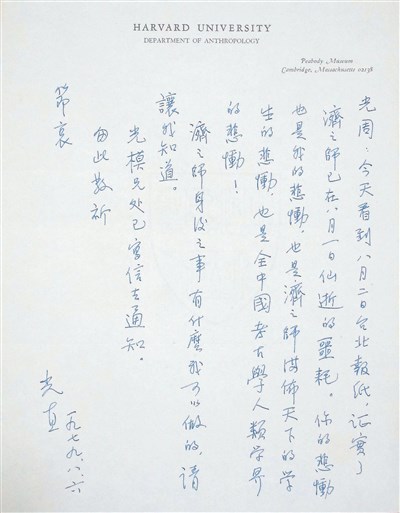 HARVARD UNIVERSITY
DEPARTMENT OF ANTHROPOLOGY
Peabody Museum
Cambridge, Massachusetts 02138
光周：今天看到八月二日台北報紙，证實了
濟之師已在八月一日仙逝的噩耗。你的悲慟
也是我的悲慟，也是濟之師满佈天下的学
生的悲慟，也是全中國考古學人類学界
的悲慟！
濟之師身後之事有什麼我可以做的，請
讓我知道。
光模兄处已寫信去通知。
由此敬祈
節哀
光直
一九七九、八、六